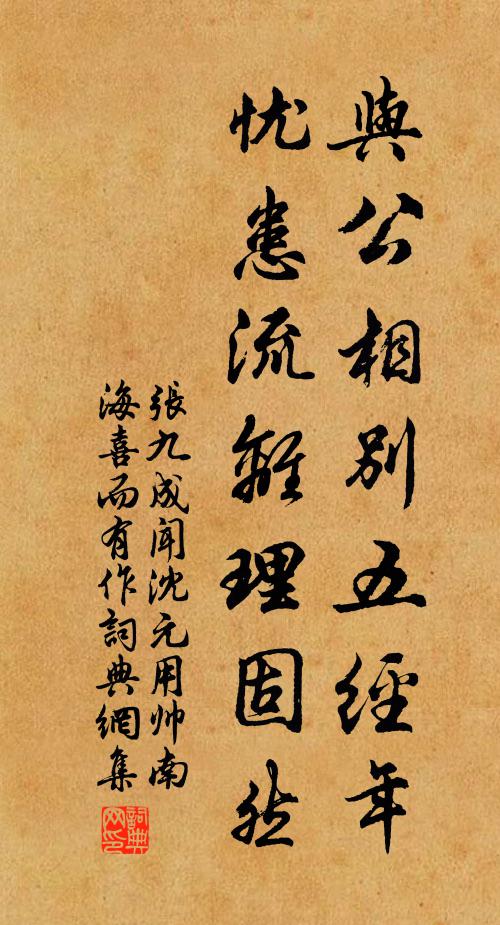 與公相別五經年
忧患流離理固然
張九成聞沈元用帅南
海喜而有作詞典網集
詞典
网印